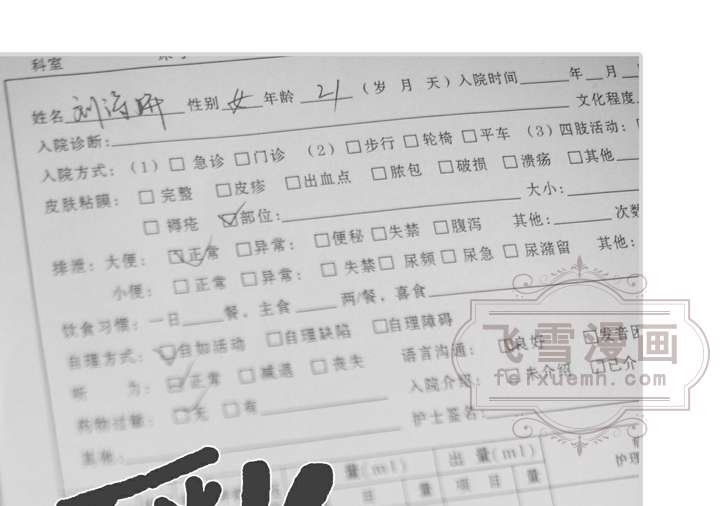 科室
姓名 刘海妍 性别 女 年龄 21 (岁 月 天) 入院时间____年__月
入院诊断: 文化程度
入院方式: (1) □ 急诊 □门诊 (2) □步行 □轮椅 □平车 (3) 四肢活动:
皮肤粘膜: □ 完整 □皮疹 □出血点 □脓包 □破损 □溃疡 □其他
□ 褥疮 ☑部位: 大小:
排泄: 大便: ☑正常 □异常: □便秘 □失禁 □腹泻 其他: 次数
小便: □正常 □异常: □ 失禁 □ 尿频 □ 尿急 □ 尿潴留 其他:
饮食习惯: 一日____餐, 主食____两/餐, 喜食
自理方式: ☑自如活动 □自理缺陷 □自理障碍 语言沟通: □良好 □发音困
听 力: ☑正常 □减退 □丧失 入院介绍: □未介绍 □已介
药物过敏: ☑无 □有 护士签名:
其他:
量(ml) 出 量(ml)
目 量 项 目 量 护理
飞雪漫画
feixuemh.com